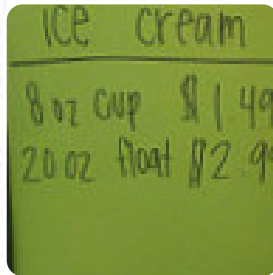 ice cream
8 oz cup $1.49
20 oz float $2.9